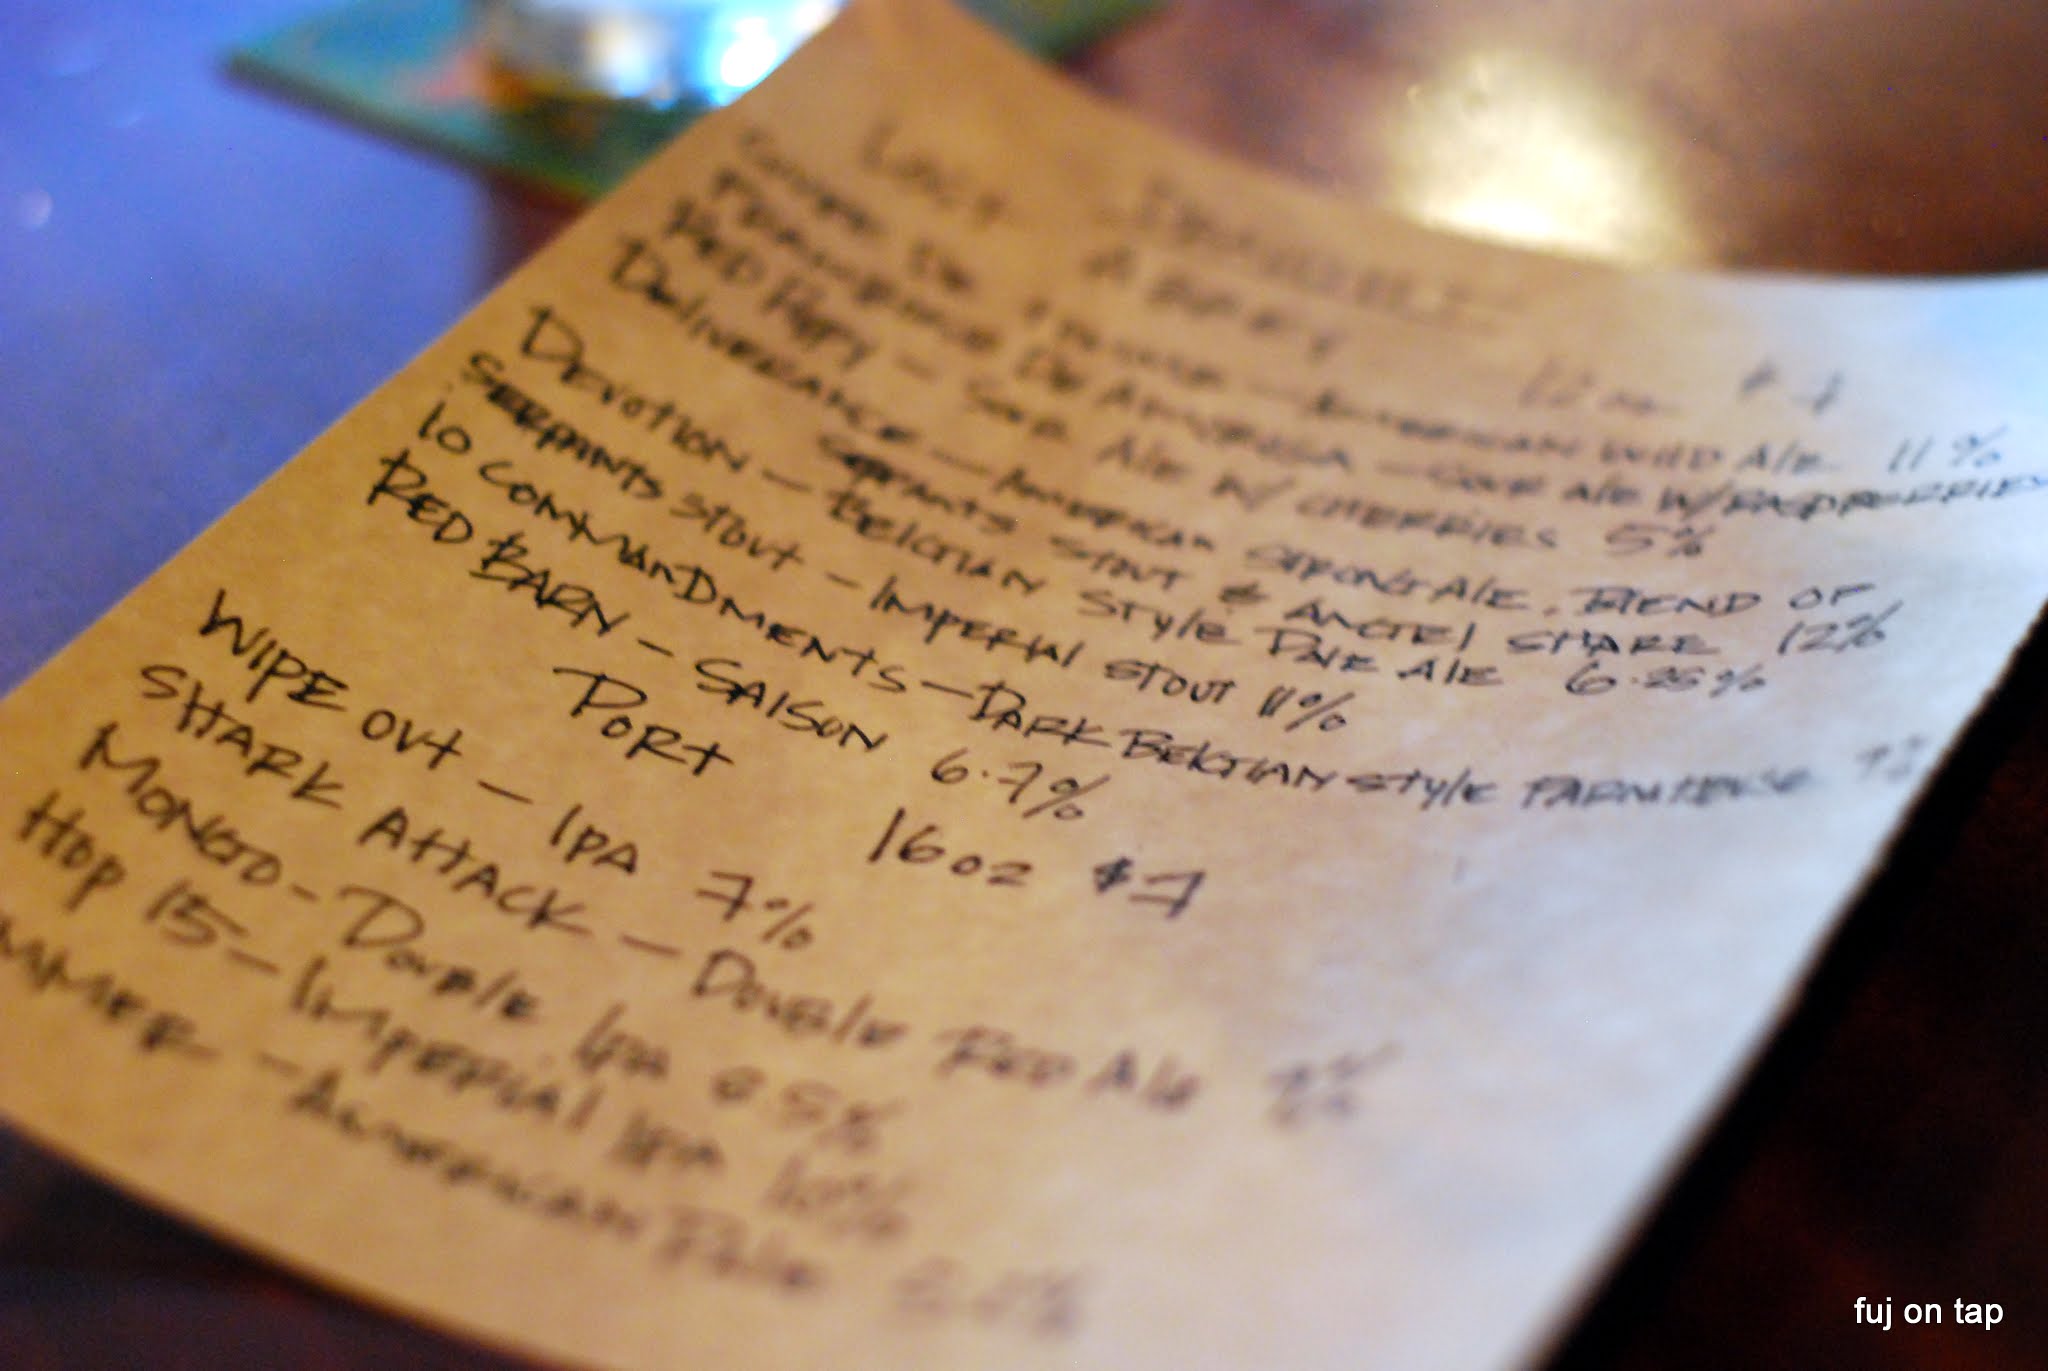 Lost Abbey 12oz $7
De - American Wild Ale 11%
De Amorosa - Sour Ale w/ Raspberries
Red Poppy - Sour Ale w/ Cherries 5%
Deliverance - American Strong Ale. Blend of
Serpants Stout & Angel Share 12%
Devotion - Belgian Style Pale Ale 6.25%
Serpants Stout - Imperial Stout 11%
10 Commandments - Dark Belgian Style Farmhouse
Red Barn - Saison 6.7%
Port 16oz $7
Wipe Out - IPA 7%
Shark Attack - Double Red Ale
Mongo - Double IPA 8.5%
Hop 15 - Imperial IPA 10%
mmer - American Pale
fuj on tap